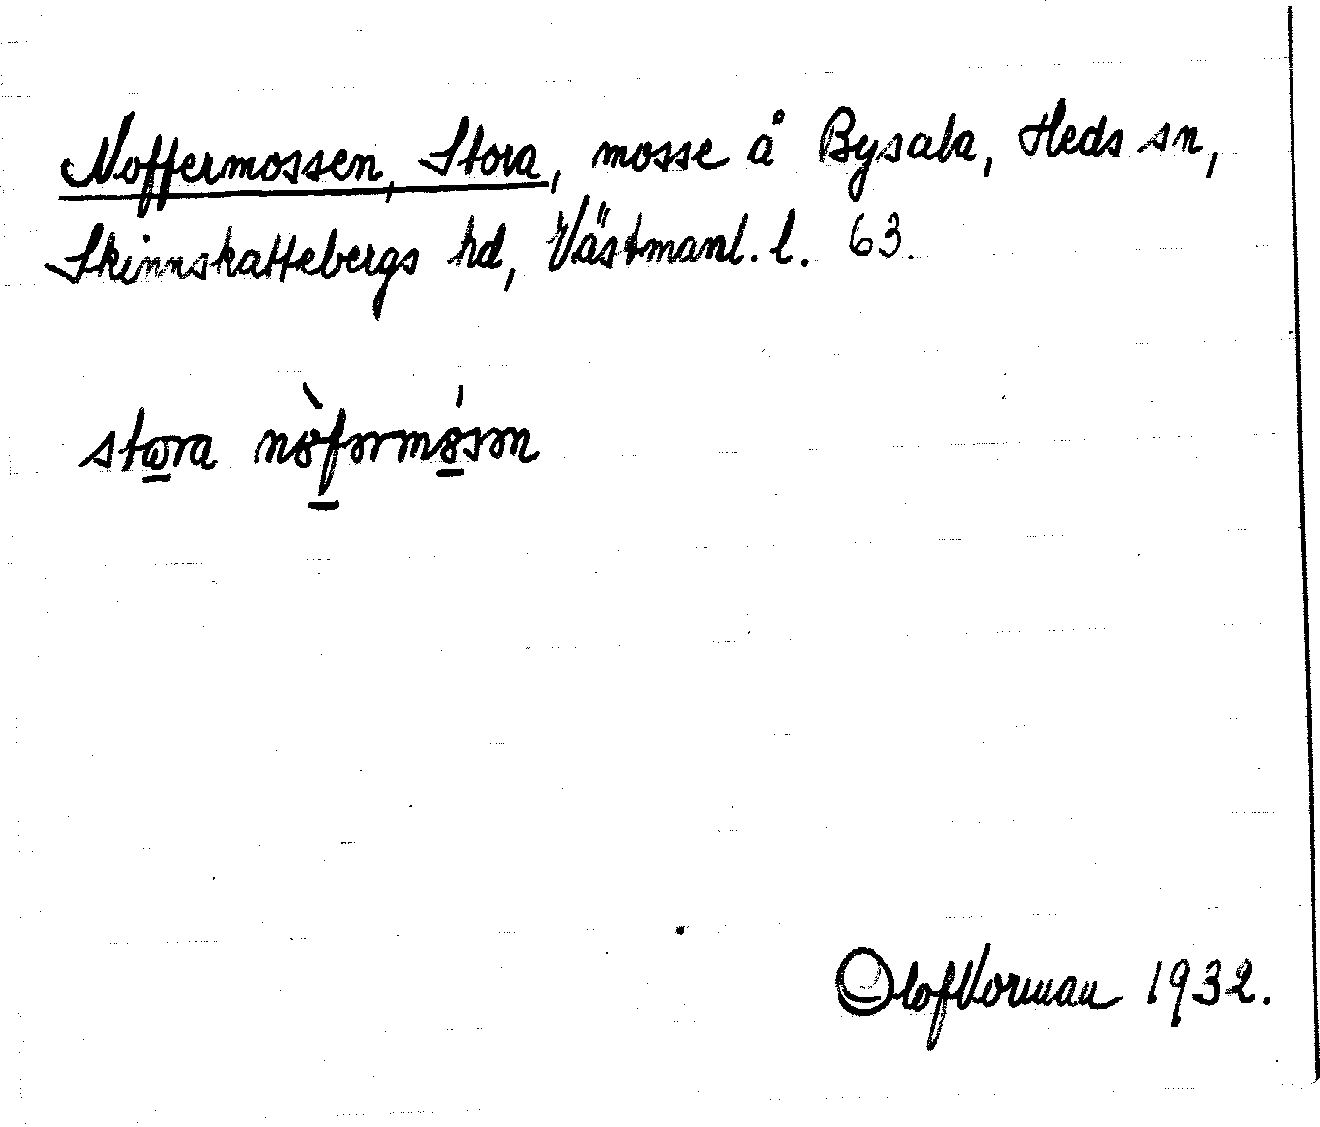 Noffermossen, Stora, mosse å Bysala, Heds sn,
Skinnskattebergs hd, Västmanl. l. 63.
stora nòfərmó́sən
Olof Norman 1932.